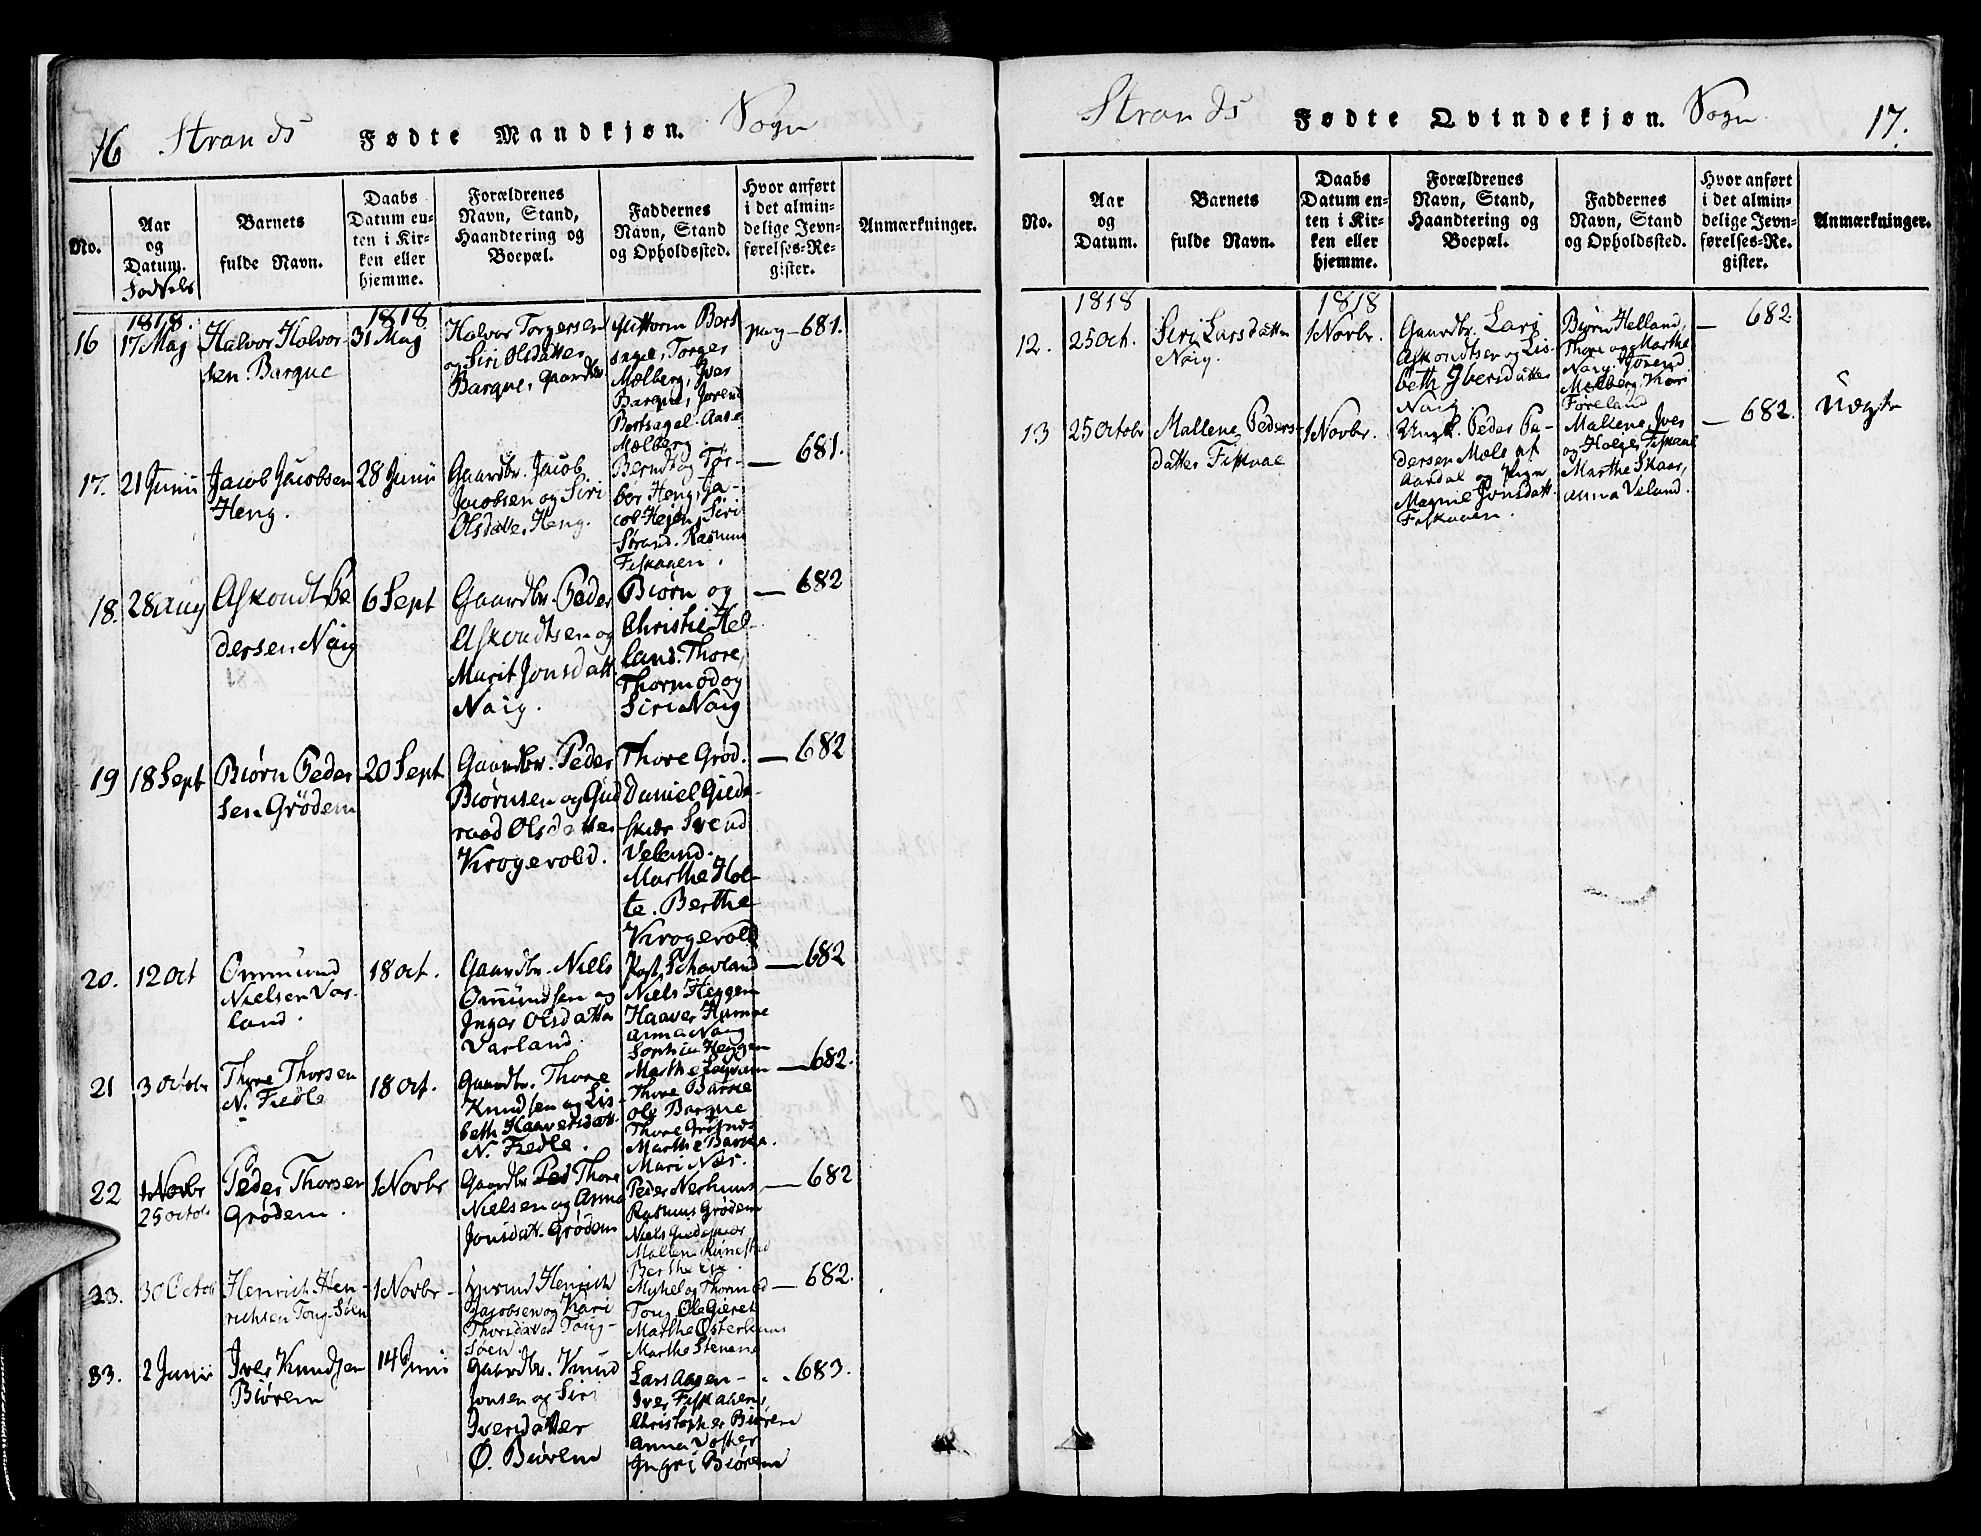 16 Strands Fødte Mandkjøn. Sogn
No.
Aar
og
Datum.
Fødsels
Barnets
fulde Navn.
Daabs
Datum en-
ten i Kir-
ken eller
hjemme.
Forældrenes
Navn, Stand,
Haandtering og
Boepæl.
Faddernes
Navn, Stand
og Opholdssted.
Hvor anført
i det almin-
delige Jevn-
førelses-Re-
gister.
Anmærkninger.
16
1818.
17 Maj
Halvor Halvor-
sen Barque
1818
31 Maj
Halvor Torgersen
og Siri Olsdatter
Barque, Gaardbr.
Guttorm Bort
sagel, Torger
Mælberg, Iver
Barque, Jorend
Bortsagel. Aase
Mælberg.
pag - 681.
17.
21 Junii
Jacob Jacobsen
Heng.
28 Junii
Gaardbr. Jacob
Jacobsen og Siri
Olsdatte. Heng.
Berndt og Tor-
bor Heng, Ja-
cob Hejen, Siri
Strand. Rasmus
Fiskaaen.
— 681.
18.
28 Aug
Askondt Pe
dersen Naig
6 Sept
Gaardbr. Peder
Askondtsen og
Marit Jonsdatt.
Naig.
Biørn og
Christie Hel-
land. Thore,
Thormod og
Siri Naig
— 682
19
18 Sept
Biørn Peder
sen Grödem
20 Sept
Gaardbr. Peder
Biørnsen og Gud
raad Olsdatter
Krogevold.
Thore Grød.
Daniel Gieds-
skær Svend
Veland.
Marthe Hol-
te. Berthe
Krogevold
— 682
20.
12 Oct
Ommund
Nielsen Var-
land.
18 Oct.
Gaardbr. Niels
Ommundsen og
Inger Olsdatter
Varland.
Niels Heggen
Haaver Humne
Anna Naig
Sophia Heggen
— 682
21
3 Octobr
Thore Thorsen
N. Fiedle
18 Oct.
Gaardbr. Thore
Knudsen og Lis-
beth Haaversdatt.
N. Fiedle.
Thore Barke
Ole Barque
Mari Næs.
— 682.
22
1 Novbr
25 Octob.
Peder Thorsen
Grødem.
1 Novbr
Gaardbr. Ped Thore
Nielsen og Anna
Jonsdat. Grødem
Peder Nerhuus
Rasmus Grødem
— 682
23.
30 Octob
Henrich Hen-
richsen Toug-Søen
1 Novbr -
Henrich
Jacobsen og Kari
Thorsdatter Toug-
Søen.
Mikel og Thormod
Toug, Ole Gieret
Marthe Østerhuus
— 682.
33.
2 Junii
Iver Knudsen
Biørem
14 Junii
Gaardbr. Knud
Jonsen og Siri
Iversdatter
Ø. Biørem
Iver Fiskaaen,
Christopher Biørem
Ingri Biørem
- 683.
Strands Fødte Qvindekjøn. Sogn. 17.
No.
Aar
og
Datum.
Barnets
fulde Navn.
Daabs
Datum en-
ten i Kir-
ken eller
hjemme.
Forældrenes
Navn, Stand,
Haandtering og
Boepæl.
Faddernes
Navn, Stand
og Opholdssted.
Hvor anført
i det almin-
delige Jevn-
førelses-Re.
gister.
Anmærkninger.
12.
1818
25 Oct.
Siri Larsdatter
Naig.
1818
1 Novbr.
Gaardbr. Lars
Askondtsen og Lis-
beth Ibersdatter
Naig.
Biørn Helland,
Thore og Marthe
Naig. Jorend
Mælberg, Kari
Føreland
— 682
13
25 Octobr
Mallene Peders-
datter Fiskaae
1 Novbr.
Ungk. Peder Pe-
dersen Mæls af
Aardal og Pigen
Magnil Jonsdatt.
Fiskaaen.
Mallene, Iver
og Helge Fiskaae
Marthe Skaar,
Anna Veland.
— 682.
Uægte